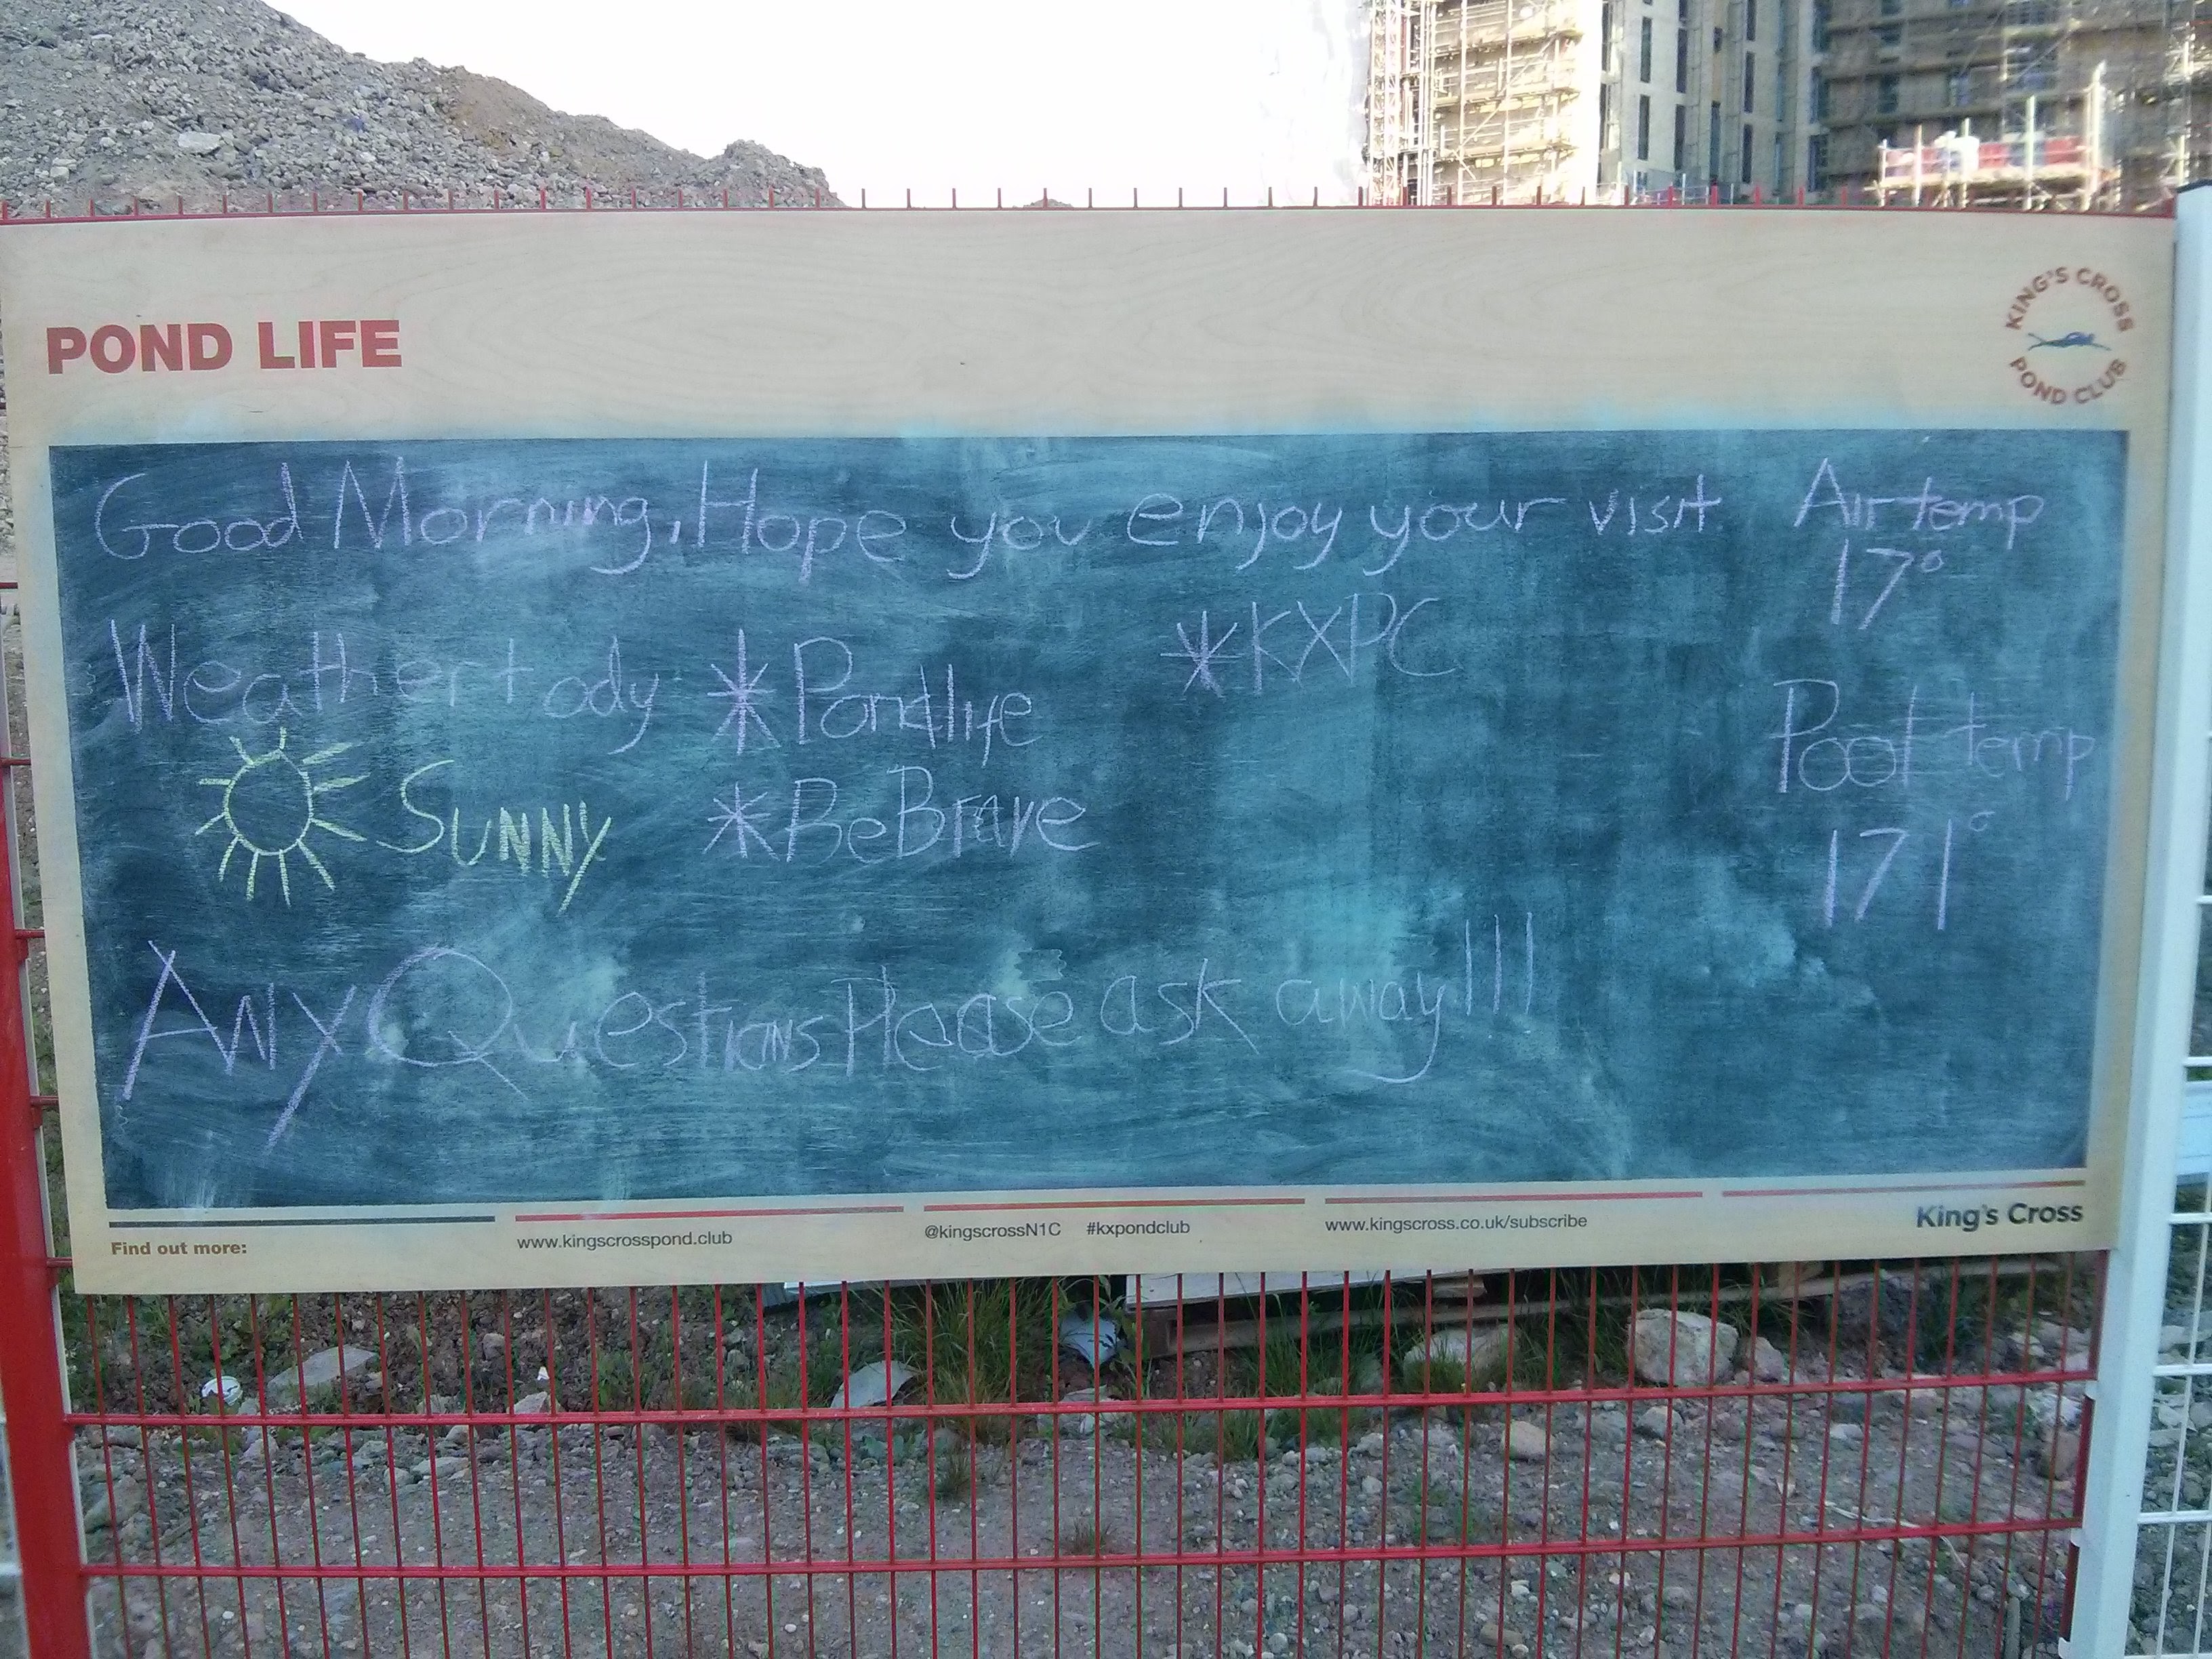 POND LIFE
KING'S CROSS
POND CLUB
Good Morning, Hope you enjoy your visit
Air temp
17°
Weather tody
*Pondlife
*KXPC
Sunny
*BeBrave
Pool temp
171°
Any Questions Please ask away!!!
Find out more:
www.kingscrosspond.club
@kingscrossN1C #kxpondclub
www.kingscross.co.uk/subscribe
King's Cross